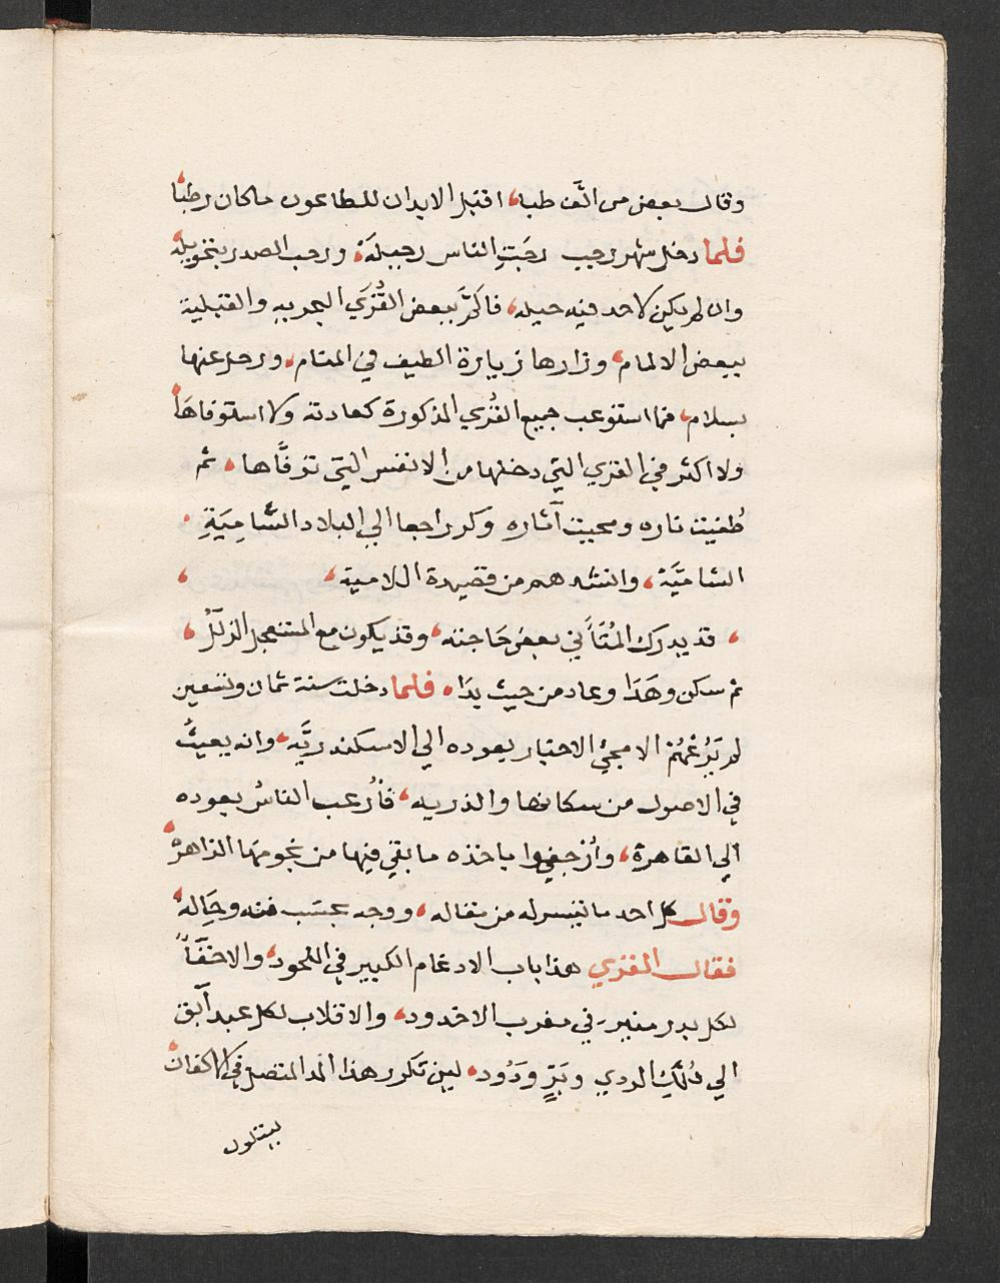 وقال بعض من الَّف طبه، اقتل الابدان للطاعون ماكان رطبا،
فلما دخل شهر رجب رجَبَتِ الناس رجيبلَة، ورحب الصدر بتخويله،
وان لم يكن لاحد فيه حيله، فاكثَر ببعض القُرَي البحريه والقبلية
ببعض الالمام، وزارها زيارة الطيف في المنام، ورحل عنها
بسلام، فما استوعب جميع القُري المذكورة كعادته ولا استوفاهَا،
ولا اكثر في القري التي دخلها من الانفس التي توفَّاها، ثم
طُفيت ناره ومحيت آثاره وكر راجعا الي البلاد الشَّامِيَةِ
الشاميَّة، وانشدهم من قصيدة اللامية،
، قد يدرك المُتَأَني بعض حَاجته، وقد يكون مع المستعجل الزلَلُ،
ثم سكن وهَدَا وعاد من حيث بدَا، فلما دخلت سنة ثمان وتسعين
لم يَرُعْهُمْ الا مجيُ الاخبار بعوده الي الاسكندريَّه، وانه يعيثُ
في الاصول من سكانها والذريه، فأُرعب الناسُ بعوده
الي القاهرة، وأُرْجِفُوا باخذه ما بقي فيها من نجومهَا الزاهرة،
وقال كل احد ما تيسر له من مقاله، ووجه بحسَب فنه وحَاله،
فقال المقري هذا باب الادغام الكبير في اللحود، والاخفَآءُ
لكل بدر منير في مغرب الاخدود، والاقلاب لكل عبد آبق
الي ذُلكِ الردي وبَرٍّ وَدَُود، لين تكرر هذا المد المتصل في الاكفان،
ليبتلون